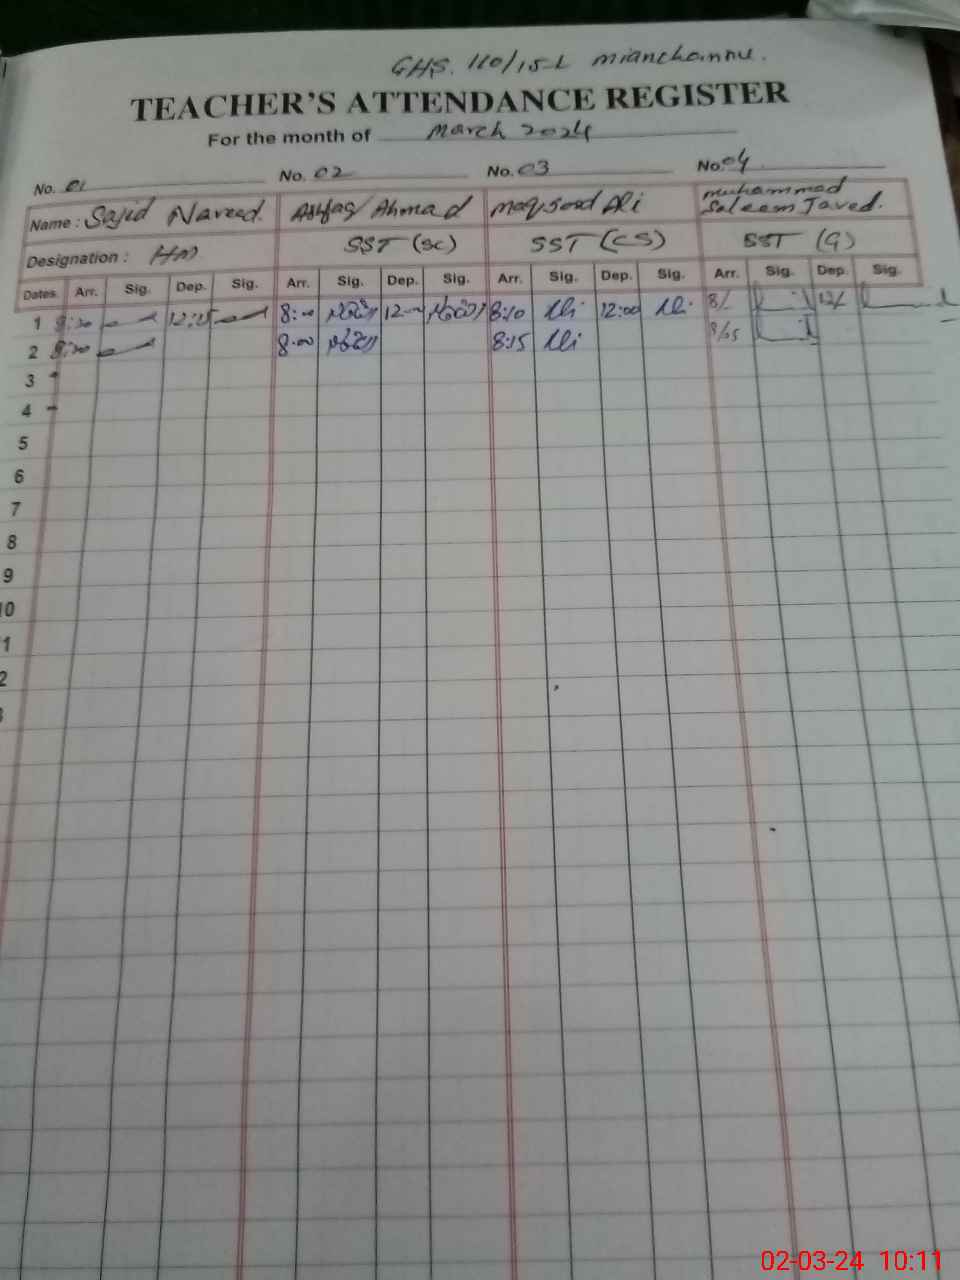 GHS. 110/15-L mianchannu.
TEACHER'S ATTENDANCE REGISTER
For the month of March 2024
No. 01 No. 02 No. 03 No. 04
Name : Sajid Naveed. Ashfaq Ahmad maqsood Ali muhammad Saleem Javed.
Designation : HM SST (SC) SST (CS) SST (G)
Dates. Arr. Sig. Dep. Sig. Arr. Sig. Dep. Sig. Arr. Sig. Dep. Sig. Arr. Sig. Dep. Sig.
1 12:15 8:00 12:00 8:10 Ali 12:00 Ali 8/- 12/-
2 8:00 8:15 Ali 8/05
3
4
5
6
7
8
9
10
1
2
3
02-03-24 10:11